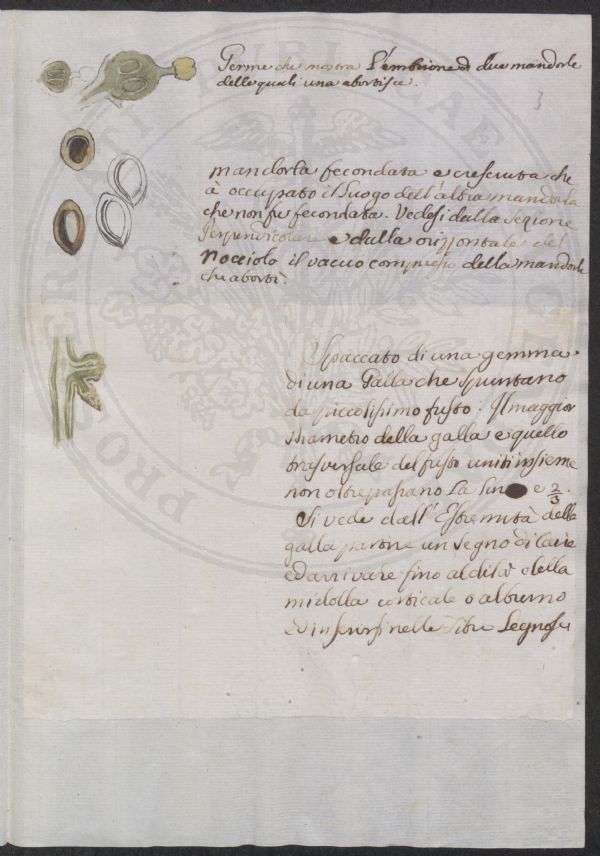 Germe che mostra l'embrione di due mandorle
delle quali una abortisce.
3
mandorla fecondata e cresciuta che
à occupato il luogo dell'altra mandorla
che non fu fecondata. Vedesi dalla sezione
perpendicolare e dalla orizontale del
nocciolo il vacuo compreso della mandorla
che abortì.
Spaccato di una gemma e
di una Galla che spuntano
da piccolissimo fusto. Il maggior
diametro della galla e quello
trasversale del fusto uniti insieme
non oltrepassano la e 2/3.
Si vede dall'Estremità della
galla partire un segno di
ed arrivare fino al di là della
midolla corticale o alburno
ed inserirsi nelle fibre Legnose